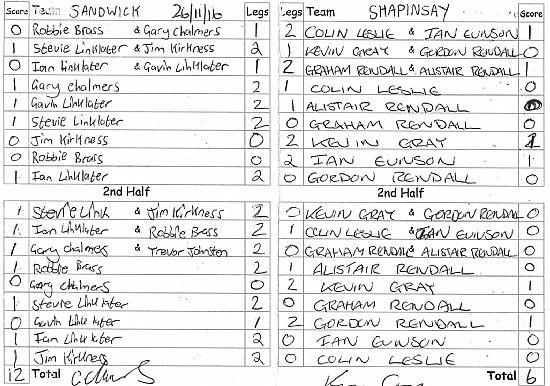 Score Team SANDWICK 26/11/16 Legs Legs Team SHAPINSAY Score
0 Robbie Brass & Gary Chalmers 1 2 COLIN LESLIE & IAN EUNSON 1
1 Stevie Linklater & Jim Kirkness 2 1 KEVIN GRAY & GORDON RENDALL 0
0 Ian Linklater & Gavin Linklater 1 2 GRAHAM RENDALL & ALISTAIR RENDALL 1
1 Gary Chalmers 2 1 COLIN LESLIE 0
1 Gavin Linklater 2 1 ALISTAIR RENDALL 0
1 Stevie Linklater 2 0 GRAHAM RENDALL 0
0 Jim Kirkness 0 2 KEVIN GRAY 1
0 Robbie Brass 0 2 IAN EUNSON 1
1 Ian Linklater 2 0 GORDON RENDALL 0
2nd Half 2nd Half
1 Stevie Link & Jim Kirkness 2 0 KEVIN GRAY & GORDON RENDAL 0
1 Ian Linklater & Robbie Brass 2 1 COLIN LESLIE & IAN EUNSON 0
1 Gary Chalmers & Trevor Johnston 2 0 GRAHAM RENDALL & ALISTAIR RENDALL 0
1 Robbie Brass 2 1 ALISTAIR RENDALL 0
0 Gary Chalmers 0 2 KEVIN GRAY 1
1 Stevie Linklater 2 0 GRAHAM RENDALL 0
0 Gavin Linklater 1 2 GORDON RENDALL 1
1 Ian Linklater 2 0 IAN EUNSON 0
1 Jim Kirkness 2 0 COLIN LESLIE 0
12 Total Total 6